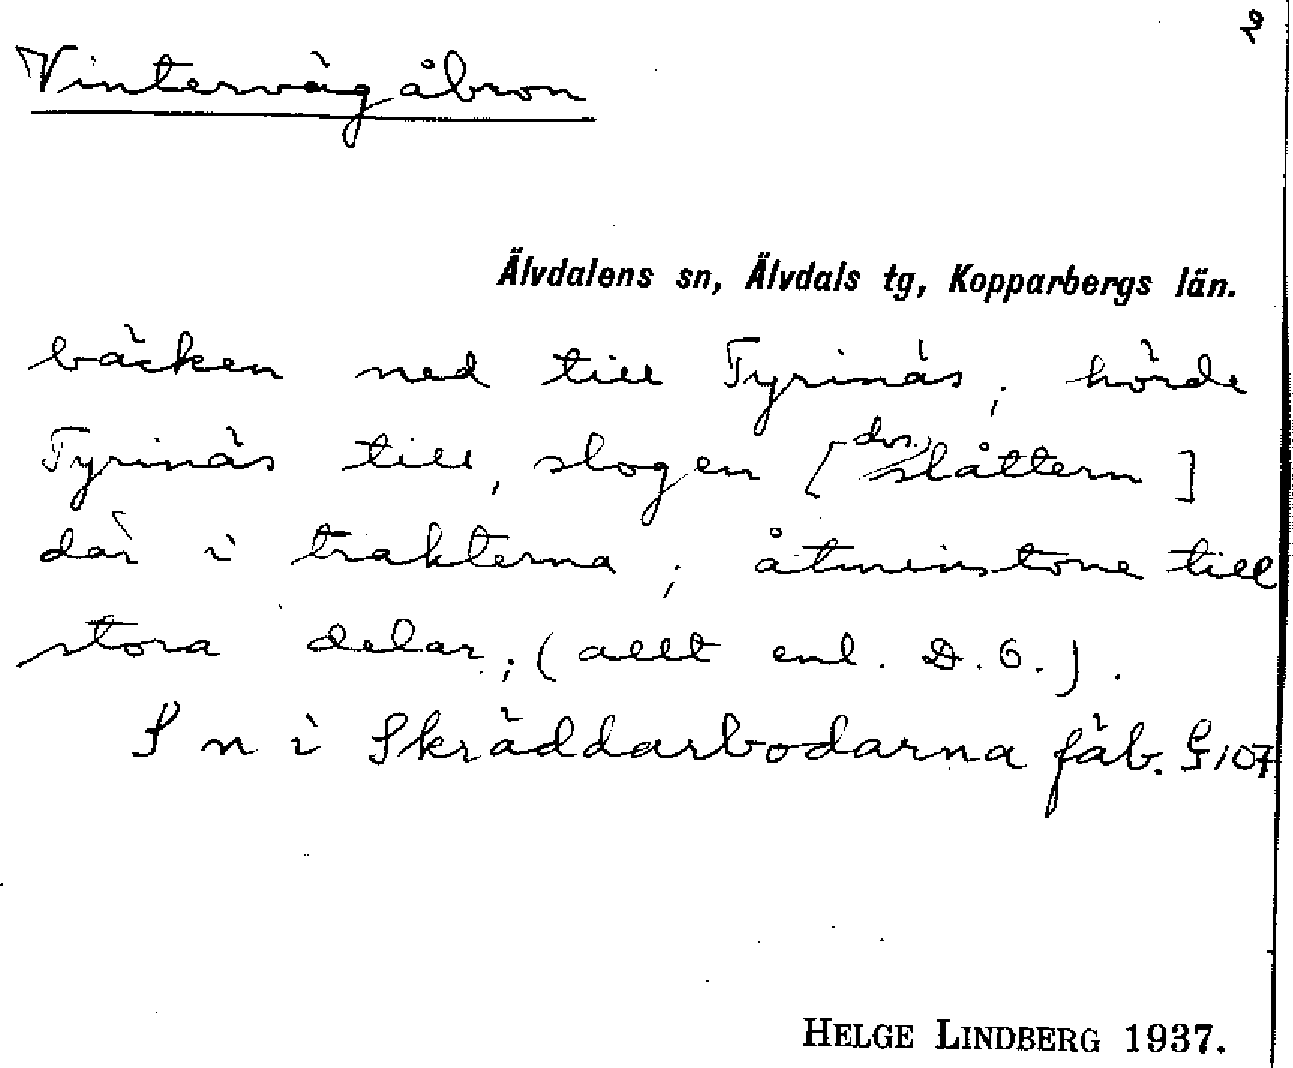 2
Vintervägåbron
Älvdalens sn, Älvdals tg, Kopparbergs län.
bäcken ned till Tyrinäs; hörde
Tyrinäs till, slogen [dvs. slåttern]
där i trakterna; åtminstone till
stora delar; (allt enl. D. 6.).
S n i Skräddarbodarna fäb. S 107
HELGE LINDBERG 1937.